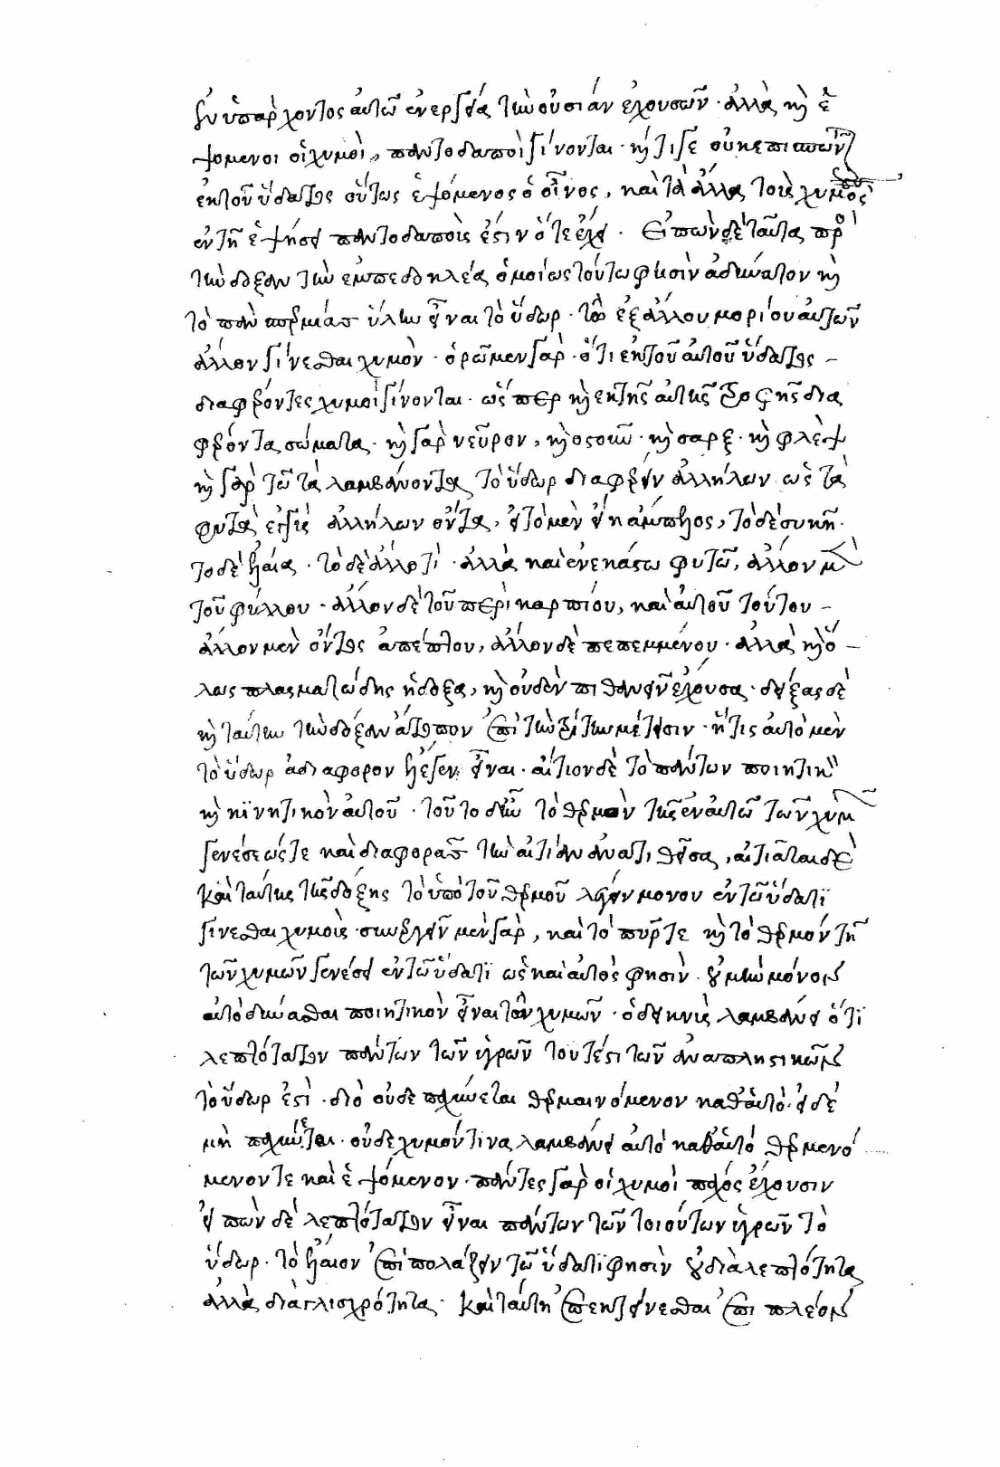 ὑπάρχοντος αὐτῶ ἐνεργεία τὴν οὐσίαν ἐχουσῶν · ἀλλὰ καὶ ἑ
ψόμενοι οἱ χυμοὶ, παντοδαποὶ γίνονται ·
ἐκ τοῦ ὕδατος οὕτως ἑψόμενος ὁ οἶνος, καὶ τὰ ἄλλα τοὺς χυμοὺς
ἐν τῆ ἑψήσει παντοδαποὺς ἐστιν ὅτε ἔχει · Εἰπὼν δὲ ταῦτα πρὸς
τὴν δόξαν τὴν ἐμπεδοκλέα ὁμοίως τούτω φησὶν ἀδύνατον καὶ
τὸ πανσπερμίας ὕλην εἶναι τὸ ὕδωρ · τῶ ἐξ ἄλλου μορίου αὐτῶν
ἄλλον γίνεσθαι χυμὸν · ὁρῶμεν γὰρ · ὅτι ἐκ τοῦ αὐτοῦ ὕδατος
διαφέροντες χυμοὶ γίνονται · ὥσπερ καὶ ἐκ τῆς αὐτῆς τροφῆς δια
φέροντα σώματα · καὶ γὰρ νεῦρον, καὶ ὀστοῦν · καὶ σὰρξ · καὶ φλὲψ
καὶ γὰρ τὰ λαμβάνοντα τὸ ὕδωρ διαφέρειν ἀλλήλων ὡς τὰ
φυτὰ ἀλλήλων ὄντα, εἰ τὸ μὲν εἴη ἄμπελος, τὸ δὲ συκῆ ·
τὸ δὲ ἐλαία · τὸ δὲ ἄλλο τι · ἀλλὰ καὶ ἐν ἑκάστω φυτῶ, ἄλλον μὲν
τοῦ φύλλου · ἄλλον δὲ τοῦ περικαρπίου, καὶ αὐτοῦ τούτου
ἄλλον μὲν ὄντος ἀπέπτου, ἄλλον δὲ πεπεμμένου · ἀλλὰ καὶ ὅ
λως πλασματώδης ἡ δόξα, καὶ οὐδὲν πιθανὸν ἔχουσα · δείξας δὲ
καὶ ταύτην τὴν δόξαν ἄτοπον ἐπὶ τὴν τρίτην μέτεισιν · ἥτις αὐτὸ μὲν
τὸ ὕδωρ ἀδιάφορον ἔλεγεν εἶναι · αἴτιον δὲ τὸ πάντων ποιητικὸν
καὶ κινητικὸν αὐτοῦ · τοῦτο δ' ἦν τὸ θερμὸν τῆς ἐν αὐτῶ τῶν χυμῶν
γενέσεώς τε καὶ διαφορᾶς τὴν αἰτίαν ἀνατιθεῖσα, αἰτιᾶται δὲ
καὶ ταύτης τῆς δόξης τὸ ὑπὸ τοῦ θερμοῦ λέγειν μόνου ἐν τῶ ὕδατι
γίνεσθαι χυμοὺς · συνεργεῖν μὲν γὰρ, καὶ τὸ πῦρ τε καὶ τὸ θερμόν τῆ
τῶν χυμῶν γενέσει ἐν τῶ ὕδατι ὡς καὶ αὐτός φησιν · οὐ μὴν μόνον
αὐτὸ δύνασθαι ποιητικὸν εἶναι τῶν χυμῶν · ὁ δείκνυσι λαμβάνει ὅτι
λεπτότατον πάντων τῶν ὑγρῶν τουτέστι τῶν ἀναπληστικῶν
τὸ ὕδωρ ἐστὶ · διὸ οὐδὲ παχύνεται θερμαινόμενον καθ' αὑτὸ · εἰ δὲ
μὴ παχύνεται · οὐδὲ χυμόν τινα λαμβάνει αὐτὸ καθ' αὑτὸ θερμαινό
μενόν τε καὶ ἑψόμενον · πάντες γὰρ οἱ χυμοὶ πάχος ἔχουσιν
εἰπὼν δὲ λεπτότατον εἶναι πάντων τῶν τοιούτων ὑγρῶν τὸ
ὕδωρ · τὸ ἔλαιον ἐπιπολάζειν τῶ ὕδατι φησὶν οὐ διὰ λεπτότητα
ἀλλὰ διὰ γλισχρότητα · καὶ ταύτη ἐπεκτείνεσθαι ἐπὶ πλέον